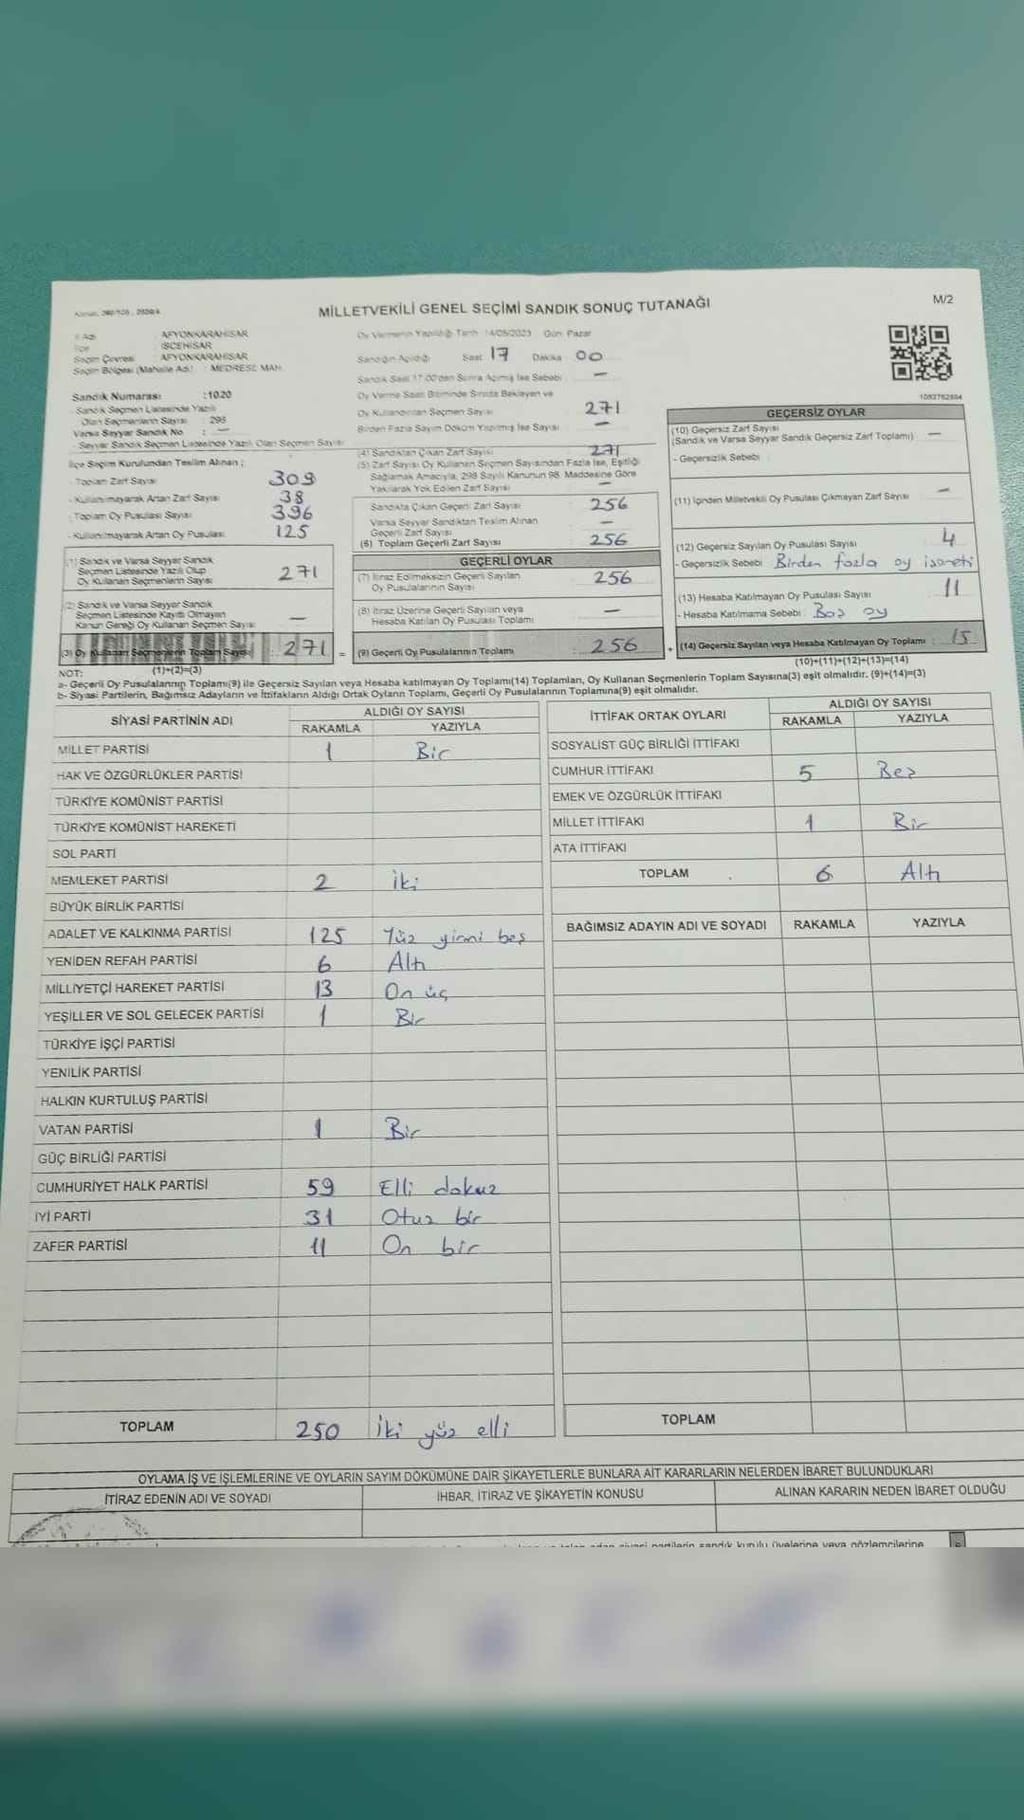 MİLLETVEKİLİ GENEL SEÇİMİ SANDIK SONUÇ TUTANAĞI
M/2
AFYONKARAHİSAR
İSCEHİSAR
Seçim Çevresi : AFYONKARAHİSAR
Seçim Bölgesi (Mahalle Adı) : MEDRESE MAH.
Oy Vermenin Yapıldığı Tarih 14/05/2023 Gün Pazar
Sandığın Açıldığı Saat 17 Dakika 00
Sandık Saat 17:00'den Sonra Açılmış İse Sebebi —
Oy Verme Saati Bitiminde Sırada Bekleyen ve
Oy Kullandırılan Seçmen Sayısı 271
Birden Fazla Sayım Döküm Yapılmış İse Sayısı —
Sandık Numarası :1020
- Sandık Seçmen Listesinde Yazılı
Olan Seçmenlerin Sayısı : 295
Varsa Seyyar Sandık No : —
- Seyyar Sandık Seçmen Listesinde Yazılı Olan Seçmen Sayısı
İlçe Seçim Kurulundan Teslim Alınan ;
- Toplam Zarf Sayısı 309
- Kullanılmayarak Artan Zarf Sayısı 38
- Toplam Oy Pusulası Sayısı 396
- Kullanılmayarak Artan Oy Pusulası 125
(1) Sandık ve Varsa Seyyar Sandık
Seçmen Listesinde Yazılı Olup
Oy Kullanan Seçmenlerin Sayısı : 271
(2) Sandık ve Varsa Seyyar Sandık
Seçmen Listesinde Kayıtlı Olmayan
Kanun Gereği Oy Kullanan Seçmen Sayısı : —
(3) Oy Kullanan Seçmenlerin Toplam Sayısı : 271 =
(4) Sandıktan Çıkan Zarf Sayısı 271
(5) Zarf Sayısı Oy Kullanan Seçmen Sayısından Fazla İse, Eşitliği
Sağlamak Amacıyla, 298 Sayılı Kanunun 98. Maddesine Göre
Yakılarak Yok Edilen Zarf Sayısı —
Sandıkta Çıkan Geçerli Zarf Sayısı 256
Varsa Seyyar Sandıktan Teslim Alınan
Geçerli Zarf Sayısı —
(6) Toplam Geçerli Zarf Sayısı 256
GEÇERLİ OYLAR
(7) İtiraz Edilmeksizin Geçerli Sayılan
Oy Pusulalarının Sayısı 256
(8) İtiraz Üzerine Geçerli Sayılan veya
Hesaba Katılan Oy Pusulası Toplamı —
(9) Geçerli Oy Pusulalarının Toplamı : 256 +
1082762884
GEÇERSİZ OYLAR
(10) Geçersiz Zarf Sayısı
(Sandık ve Varsa Seyyar Sandık Geçersiz Zarf Toplamı) —
- Geçersizlik Sebebi
(11) İçinden Milletvekili Oy Pusulası Çıkmayan Zarf Sayısı —
(12) Geçersiz Sayılan Oy Pusulası Sayısı 4
- Geçersizlik Sebebi Birden fazla oy işareti
(13) Hesaba Katılmayan Oy Pusulası Sayısı 11
- Hesaba Katılmama Sebebi : Boş oy
(14) Geçersiz Sayılan veya Hesaba Katılmayan Oy Toplamı : 15
(10)+(11)+(12)+(13)=(14)
NOT: (1)+(2)=(3)
a- Geçerli Oy Pusulalarının Toplamı(9) ile Geçersiz Sayılan veya Hesaba katılmayan Oy Toplamı(14) Toplamları, Oy Kullanan Seçmenlerin Toplam Sayısına(3) eşit olmalıdır. (9)+(14)=(3)
b- Siyasi Partilerin, Bağımsız Adayların ve İttifakların Aldığı Ortak Oyların Toplamı, Geçerli Oy Pusulalarının Toplamına(9) eşit olmalıdır.
SİYASİ PARTİNİN ADI
ALDIĞI OY SAYISI
RAKAMLA YAZIYLA
MİLLET PARTİSİ 1 Bir
HAK VE ÖZGÜRLÜKLER PARTİSİ
TÜRKİYE KOMÜNİST PARTİSİ
TÜRKİYE KOMÜNİST HAREKETİ
SOL PARTİ
MEMLEKET PARTİSİ 2 İki
BÜYÜK BİRLİK PARTİSİ
ADALET VE KALKINMA PARTİSİ 125 Yüz yirmi beş
YENİDEN REFAH PARTİSİ 6 Altı
MİLLİYETÇİ HAREKET PARTİSİ 13 On üç
YEŞİLLER VE SOL GELECEK PARTİSİ 1 Bir
TÜRKİYE İŞÇİ PARTİSİ
YENİLİK PARTİSİ
HALKIN KURTULUŞ PARTİSİ
VATAN PARTİSİ 1 Bir
GÜÇ BİRLİĞİ PARTİSİ
CUMHURİYET HALK PARTİSİ 59 Elli dokuz
İYİ PARTİ 31 Otuz bir
ZAFER PARTİSİ 11 On bir
TOPLAM 250 İki yüz elli
İTTİFAK ORTAK OYLARI
ALDIĞI OY SAYISI
RAKAMLA YAZIYLA
SOSYALİST GÜÇ BİRLİĞİ İTTİFAKI
CUMHUR İTTİFAKI 5 Beş
EMEK VE ÖZGÜRLÜK İTTİFAKI
MİLLET İTTİFAKI 1 Bir
ATA İTTİFAKI
TOPLAM 6 Altı
BAĞIMSIZ ADAYIN ADI VE SOYADI RAKAMLA YAZIYLA
TOPLAM
OYLAMA İŞ VE İŞLEMLERİNE VE OYLARIN SAYIM DÖKÜMÜNE DAİR ŞİKAYETLERLE BUNLARA AİT KARARLARIN NELERDEN İBARET BULUNDUKLARI
İTİRAZ EDENİN ADI VE SOYADI
İHBAR, İTİRAZ VE ŞİKAYETİN KONUSU
ALINAN KARARIN NEDEN İBARET OLDUĞU